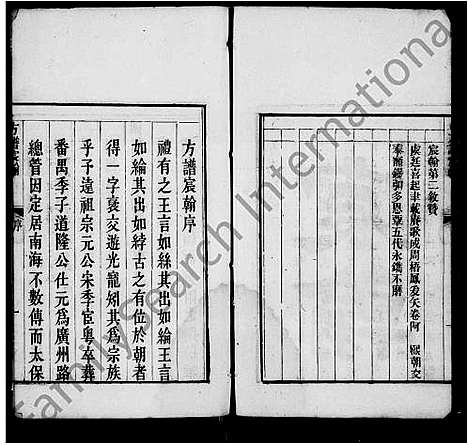 宸翰第二敘贊
虞廷喜起聿載賡歌成周梧鳳爰矢卷阿 熙朝交
泰
五代永鐫不磨
方譜宸翰序
禮有之王言如絲其出如綸王言
如綸其出如綍古之有位於朝者
得一字褒交遊光寵矧其為宗族
乎予遠祖宗元公宋季宦粵卒葬
番禺季子道隆公仕元為廣州路
總管因定居南海不數傳而太保
方譜宸翰
序
FamilySearch International